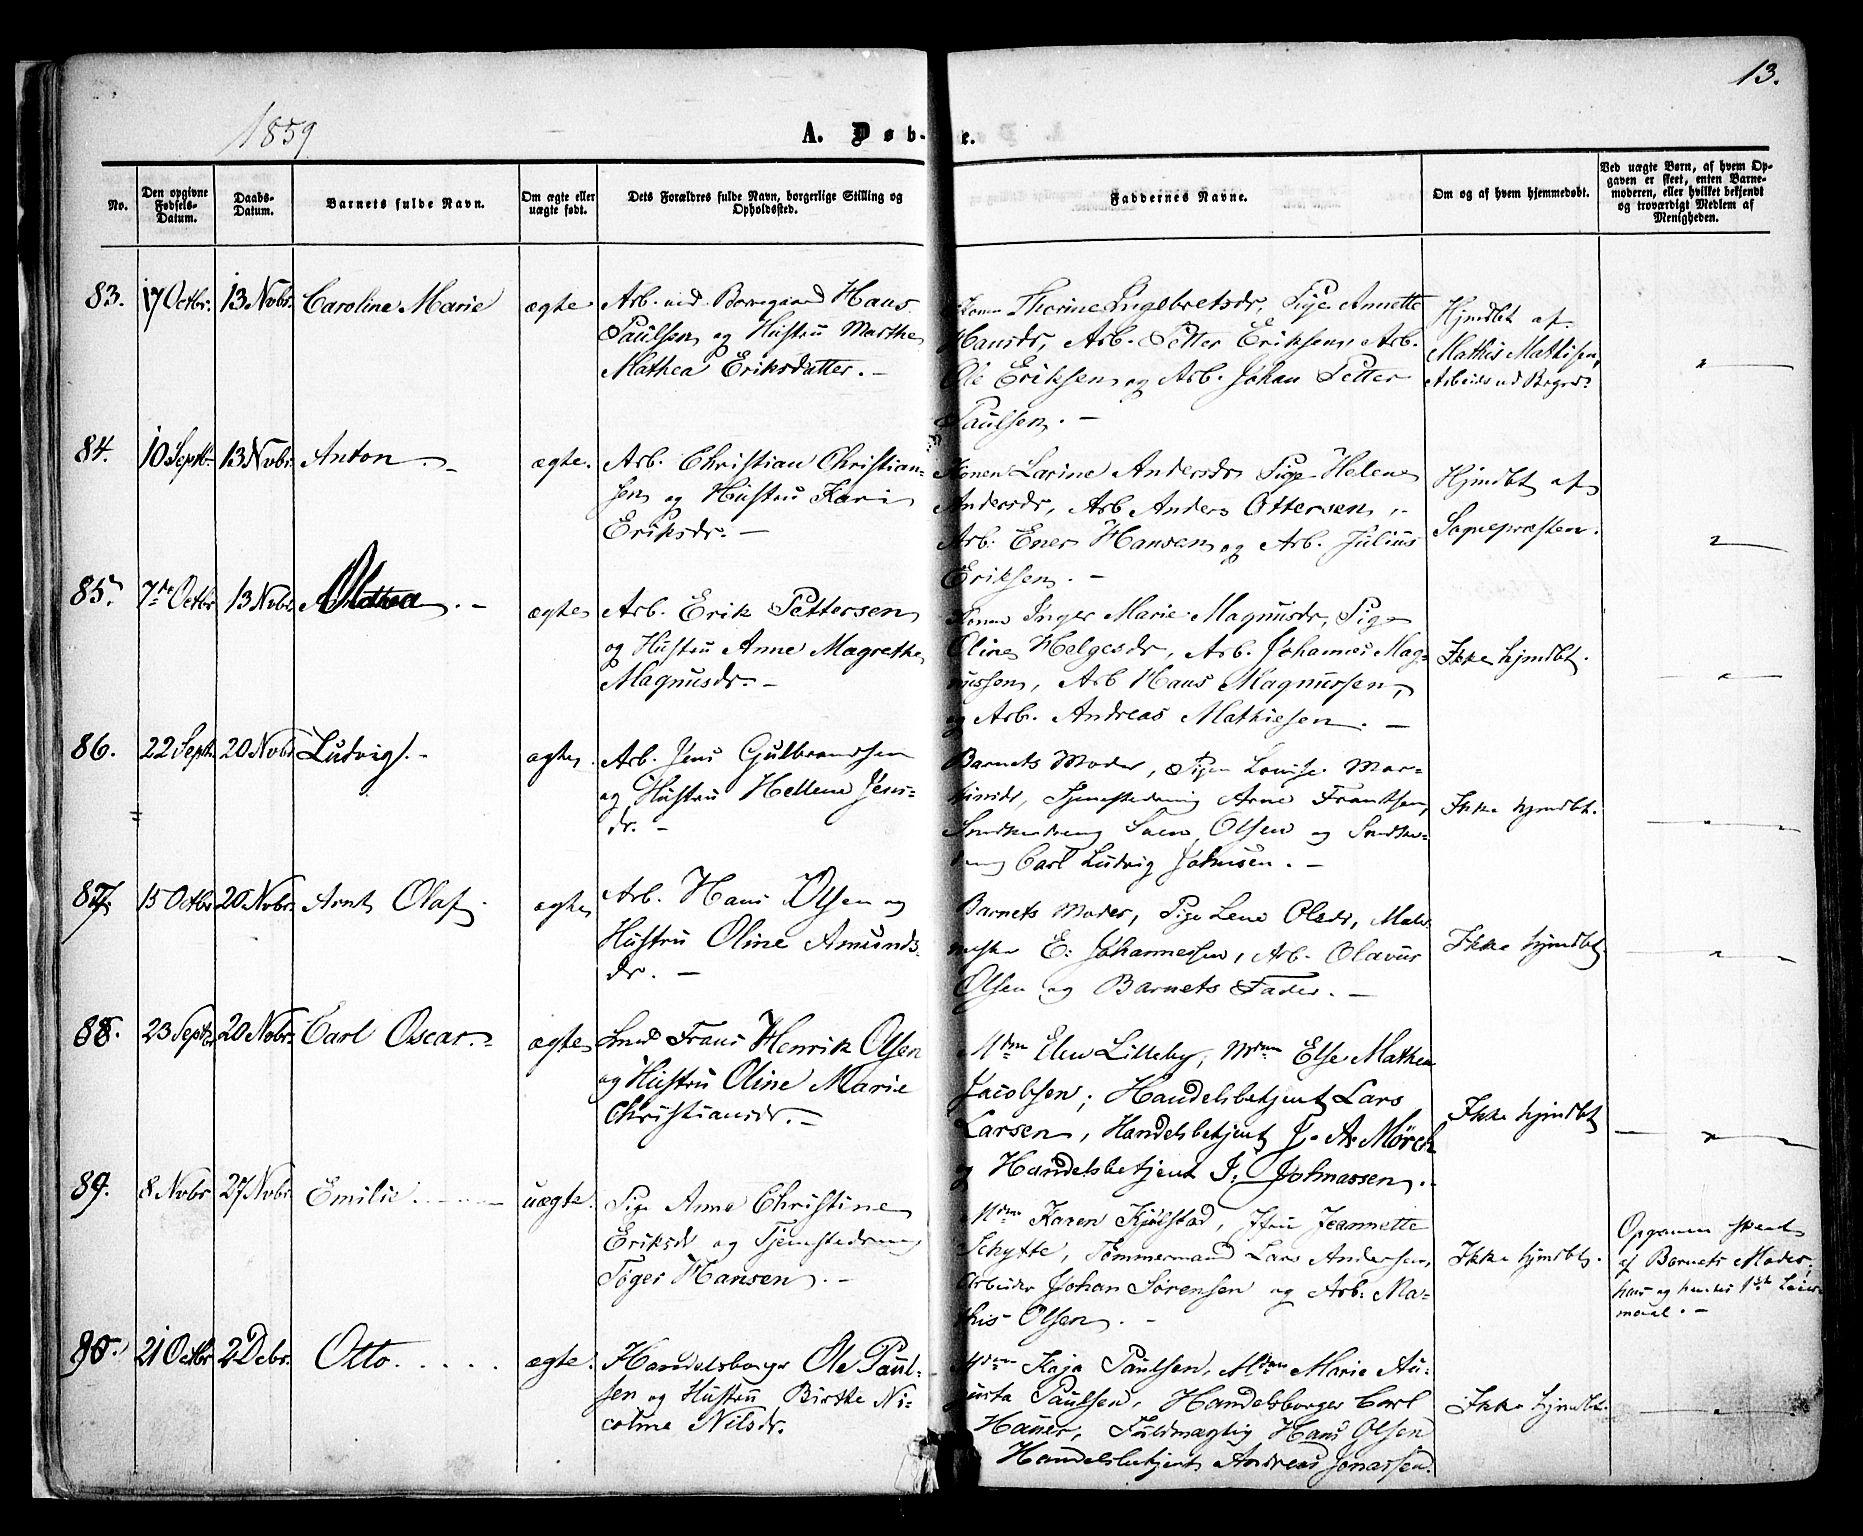 13.
1859
A. Døb- e.
No.
Den opgivne Fødsels-Datum.
Daabs-Datum.
Barnets fulde Navn.
Om ægte eller uægte født.
Dets Forældres fulde Navn, borgerlige Stilling og Opholdssted.
Faddernes Navne.
Om og af hvem hjemmedøbt.
Ved uægte Børn, af hvem Opgaven er skeet, enten Barnemoderen, eller hvilket bekjendt og troværdigt Medlem af Menigheden.
83. 17 Octbr. 13 Nvbr. Caroline Marie ægte
Arb. ved Borregaard Hans
Paulsen og Hustru Marthe
Mathea Eriksdatter. -
Konen Thorine Ingebretsdr, Pige Annette
Hansdr, Arb. Petter Eriksen, Arb.
Ole Eriksen og Arb. Johan Petter
Paulsen. -
Hjmdbt af
Mathis Mathisen,
84. 10 Septb. 13 Nvbr. Anton. - ægte.
Arb. Christian Christian-
sen og Hustru Kari
Eriksdr. -
Konen Larine Andersdr Pige Helene
Andersdr, Arb Anders Ottersen,
Arb. Ener Hansen og Arb. Julius
Eriksen. -
Hjmdbt af
Sognepræsten.
85. 7de Octbr 13 Nvbr. Mathea. - ægte
Arb. Erik Pettersen
og Hustru Anne Magrethe
Magnusdr. -
Konen Inger Marie Magnusdr, Pige
Oline Helgesdr, Arb. Johannes Mag-
nussen, Arb Hans Magnussen,
og Arb. Andreas Mathiesen. -
Ikke hjmdbt.
86. 22 Septb. 20 Nvbr Ludvig. - ægte.
Arb. Jens Gulbrandsen
og Hustru Hellene Jens-
dr. -
Barnets Moder, Pigen Lovise Mar-
tinsdr, Tjenestedreng Arne Frantsen,
Olsen og
Carl Ludvig Johnsen. -
Ikke hjmdbt.
87. 15 Octbr 20 Nvbr. Arnt Olaf. ægte
Arb. Hans Olsen og
Hustru Oline Amunds-
dr. -
Barnets Moder, Pige Lene Olsdr, Maler-
E. Johannessen, Arb. Olavus
Olsen og Barnets Fader. -
Ikke hjmdbt.
88. 23 Septbr 20 Nvbr. Carl Oscar. - ægte
Smed Frans Henrik Olsen
og Hustru Oline Marie
Christiansdr. -
Mdm Elen Lilleby, Mdm Else Mathea
Jacobsen, Handelsbetjent Lars
Larsen, Handelsbetjent J. A. Mörch
og Handelsbetjent J. Johnassen.
Ikke hjmdbt
89. 8 Nvbr 27 Nvbr. Emilie. uægte.
Pige Anne Christine
Eriksdr og Tjenestedreng
Töger Hansen. -
Mdm Karen Kjölstad, Fru Jeannette
Schytte, Tömmermand Lars Andersen,
Arbeider Johan Sörensen og Arb. Ma-
this Olsen. -
Ikke hjmdbt.
Opgaven skeet
af Barnets Moder,
hans og hendes 1ste Leier-
maal. -
90. 21 Octbr 2 Debr. Otto. . . . . ægte.
Handelsborger Ole Paul-
sen og Hustru Birthe Ni-
coline Nilsdr.
Mdm Kaja Paulsen, Mdm Marie Au-
gusta Paulsen, Handelsborger Carl
Hauer, Fuldmægtig Hans Olsen
Handelsbetjent Andreas Jonassen.
Ikke hjmdbt.